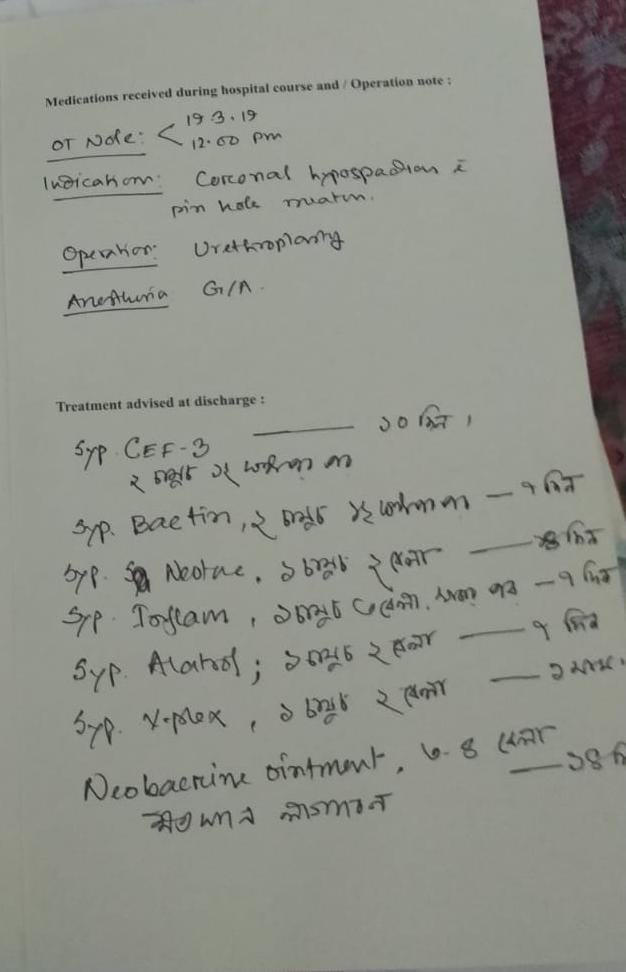 Medications received during hospital course and / Operation note :
OT Note: < 19.3.19
12.00 pm
Indication: Coronal hypospadias c̄
pin hole meatus.
Operation: Urethroplasty
Anesthesia G/A.
Treatment advised at discharge :
Syp. CEF-3 —— ১০ দিন।
২ চামুচ ১২
Syp. Bactin, ২ চামুচ ১২ — ৭ দিন
Syp. Neotac, ১ চামুচ ২ বেলা — ১৪ দিন
Syp. Toflam, ১ চামুচ ৩ বেলা, পর — ৭ দিন
Syp. Alatrol; ১ চামুচ ২ বেলা — ৭ দিন
Syp. V-plex, ১ চামুচ ২ বেলা — ১ মাস।
Neobacrine ointment, ৩-৪ বেলা
— ১৪ দি
লাগাবেন